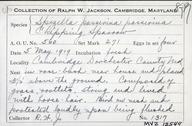 COLLECTION OF RALPH W. JACKSON, CAMBRIDGE, MARYLAND
Species Spizella passerina passerina
Chipping Sparrow
A.O.U. No. 560 Set Mark 271 Eggs in set four
Date 5 May 1919 Incubation fresh
Locality Cambridge Dorchester County Md
Nest in rose bush near house and placed
above the ground. Composed of
grass rootlets, and lined
with horse hair. Bird on nest and
protested when being flushed
Collector R.W.J. No. 1317
MVZ 12544